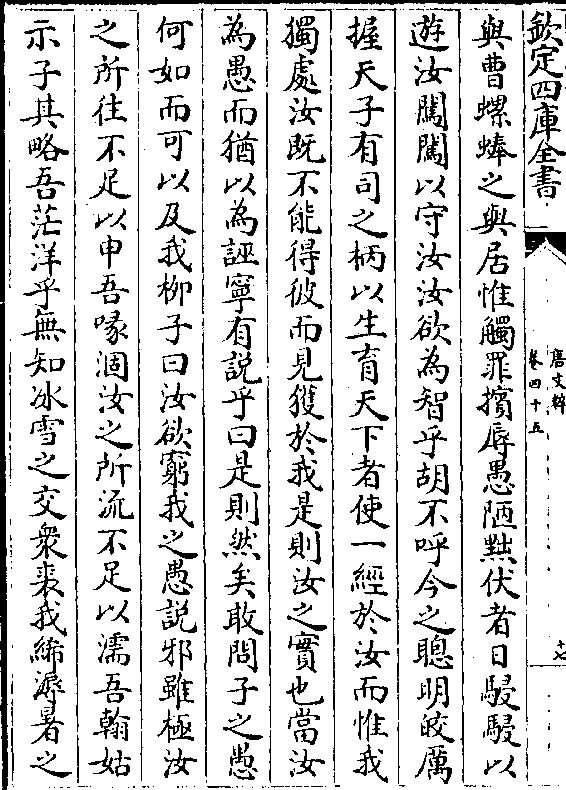 欽定四庫全書
唐文粹
卷四十五
十七
與曹螺蜯之與居惟觸罪擯辱愚陋黜伏者日駸駸以
遊汝闖闖以守汝汝欲為智乎胡不呼今之聰明皎厲
握天子有司之柄以生育天下者使一經於汝而惟我
獨處汝既不能得彼而見獲於我是則汝之實也當汝
為愚而猶以為誣寧有説乎曰是則然矣敢問子之愚
何如而可以及我柳子曰汝欲窮我之愚説邪雖極汝
之所往不足以申吾喙涸汝之所流不足以濡吾翰姑
示子其略吾茫洋乎無知冰雪之交衆裘我絺溽暑之